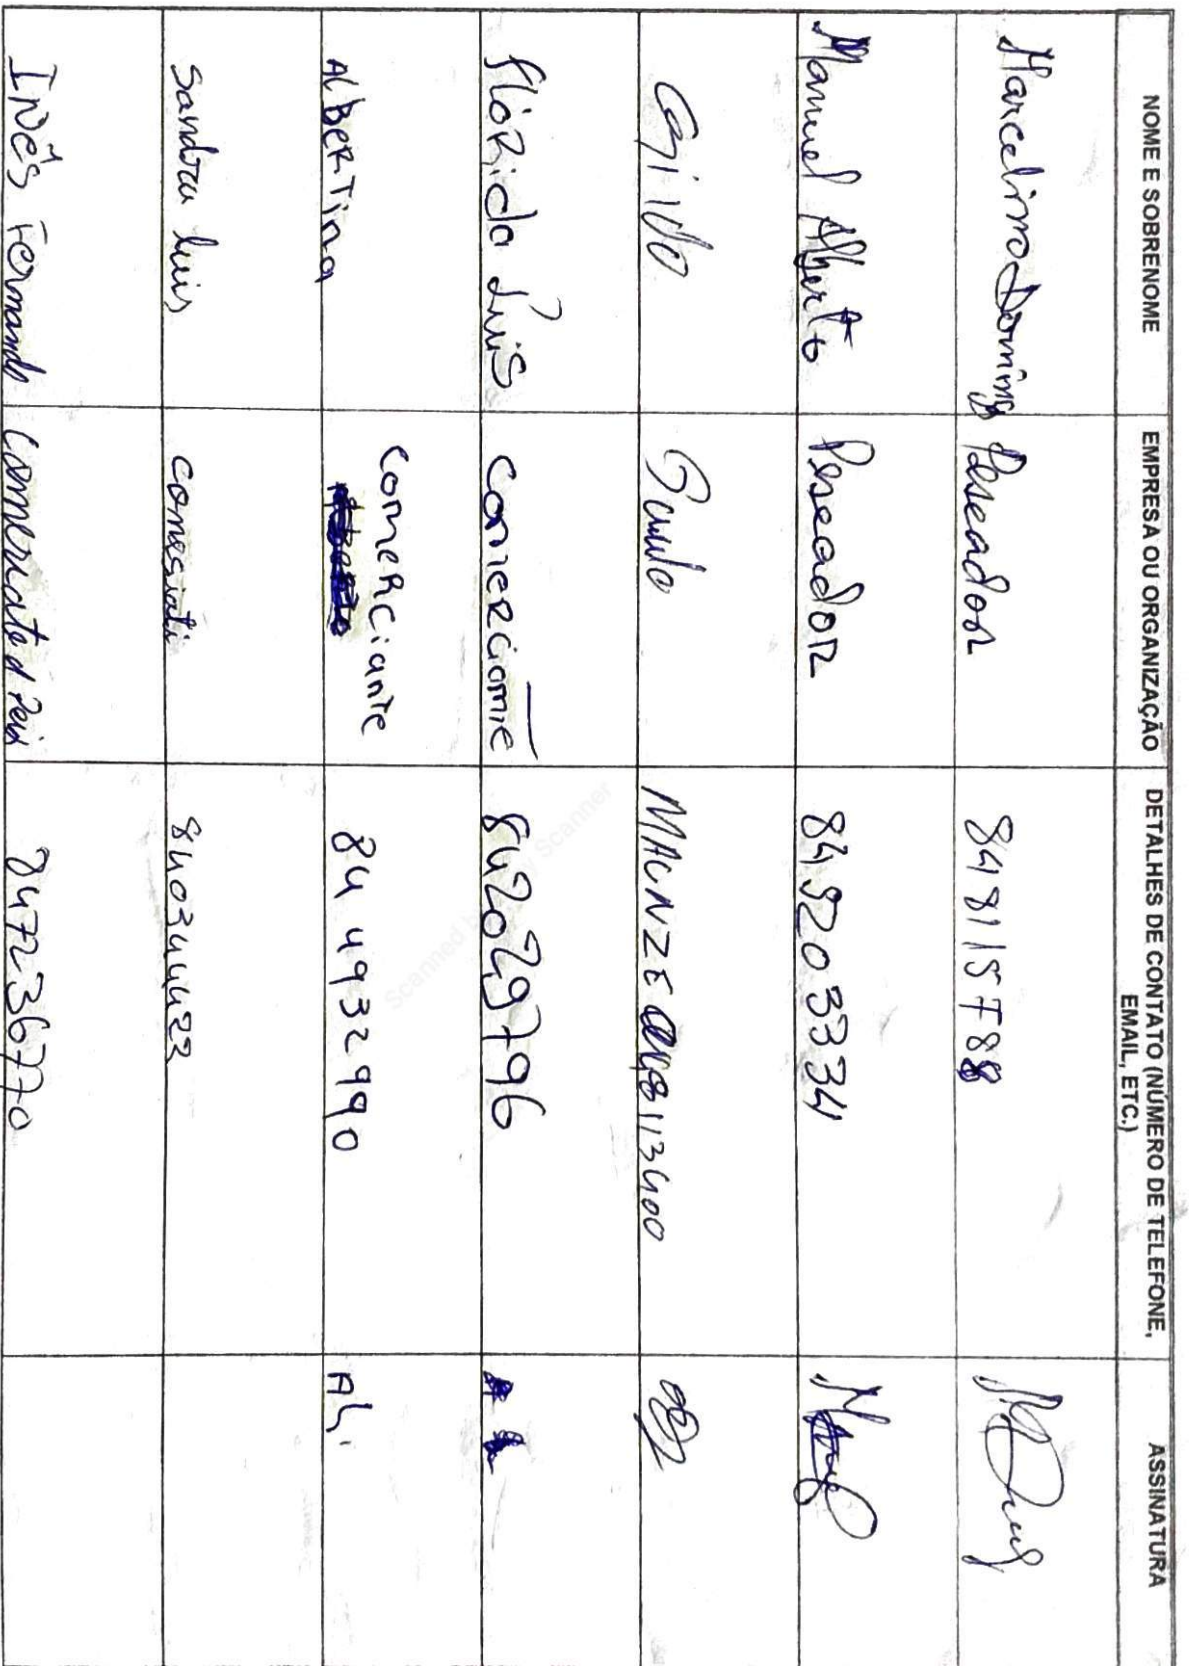 NOME E SOBRENOME EMPRESA OU ORGANIZAÇÃO DETALHES DE CONTATO (NÚMERO DE TELEFONE, EMAIL, ETC.) ASSINATURA
Marcelino Domingos Pescador 848115788
Manuel Alberto Pescador 849203334
MACNZE 848113400
flóRida Luis comerciante 842029796
AlBeRTina comeRciante 844932990 Al.
Sandra luis 840344423
INÊS Fernando 847236770
Scanned by Scanner